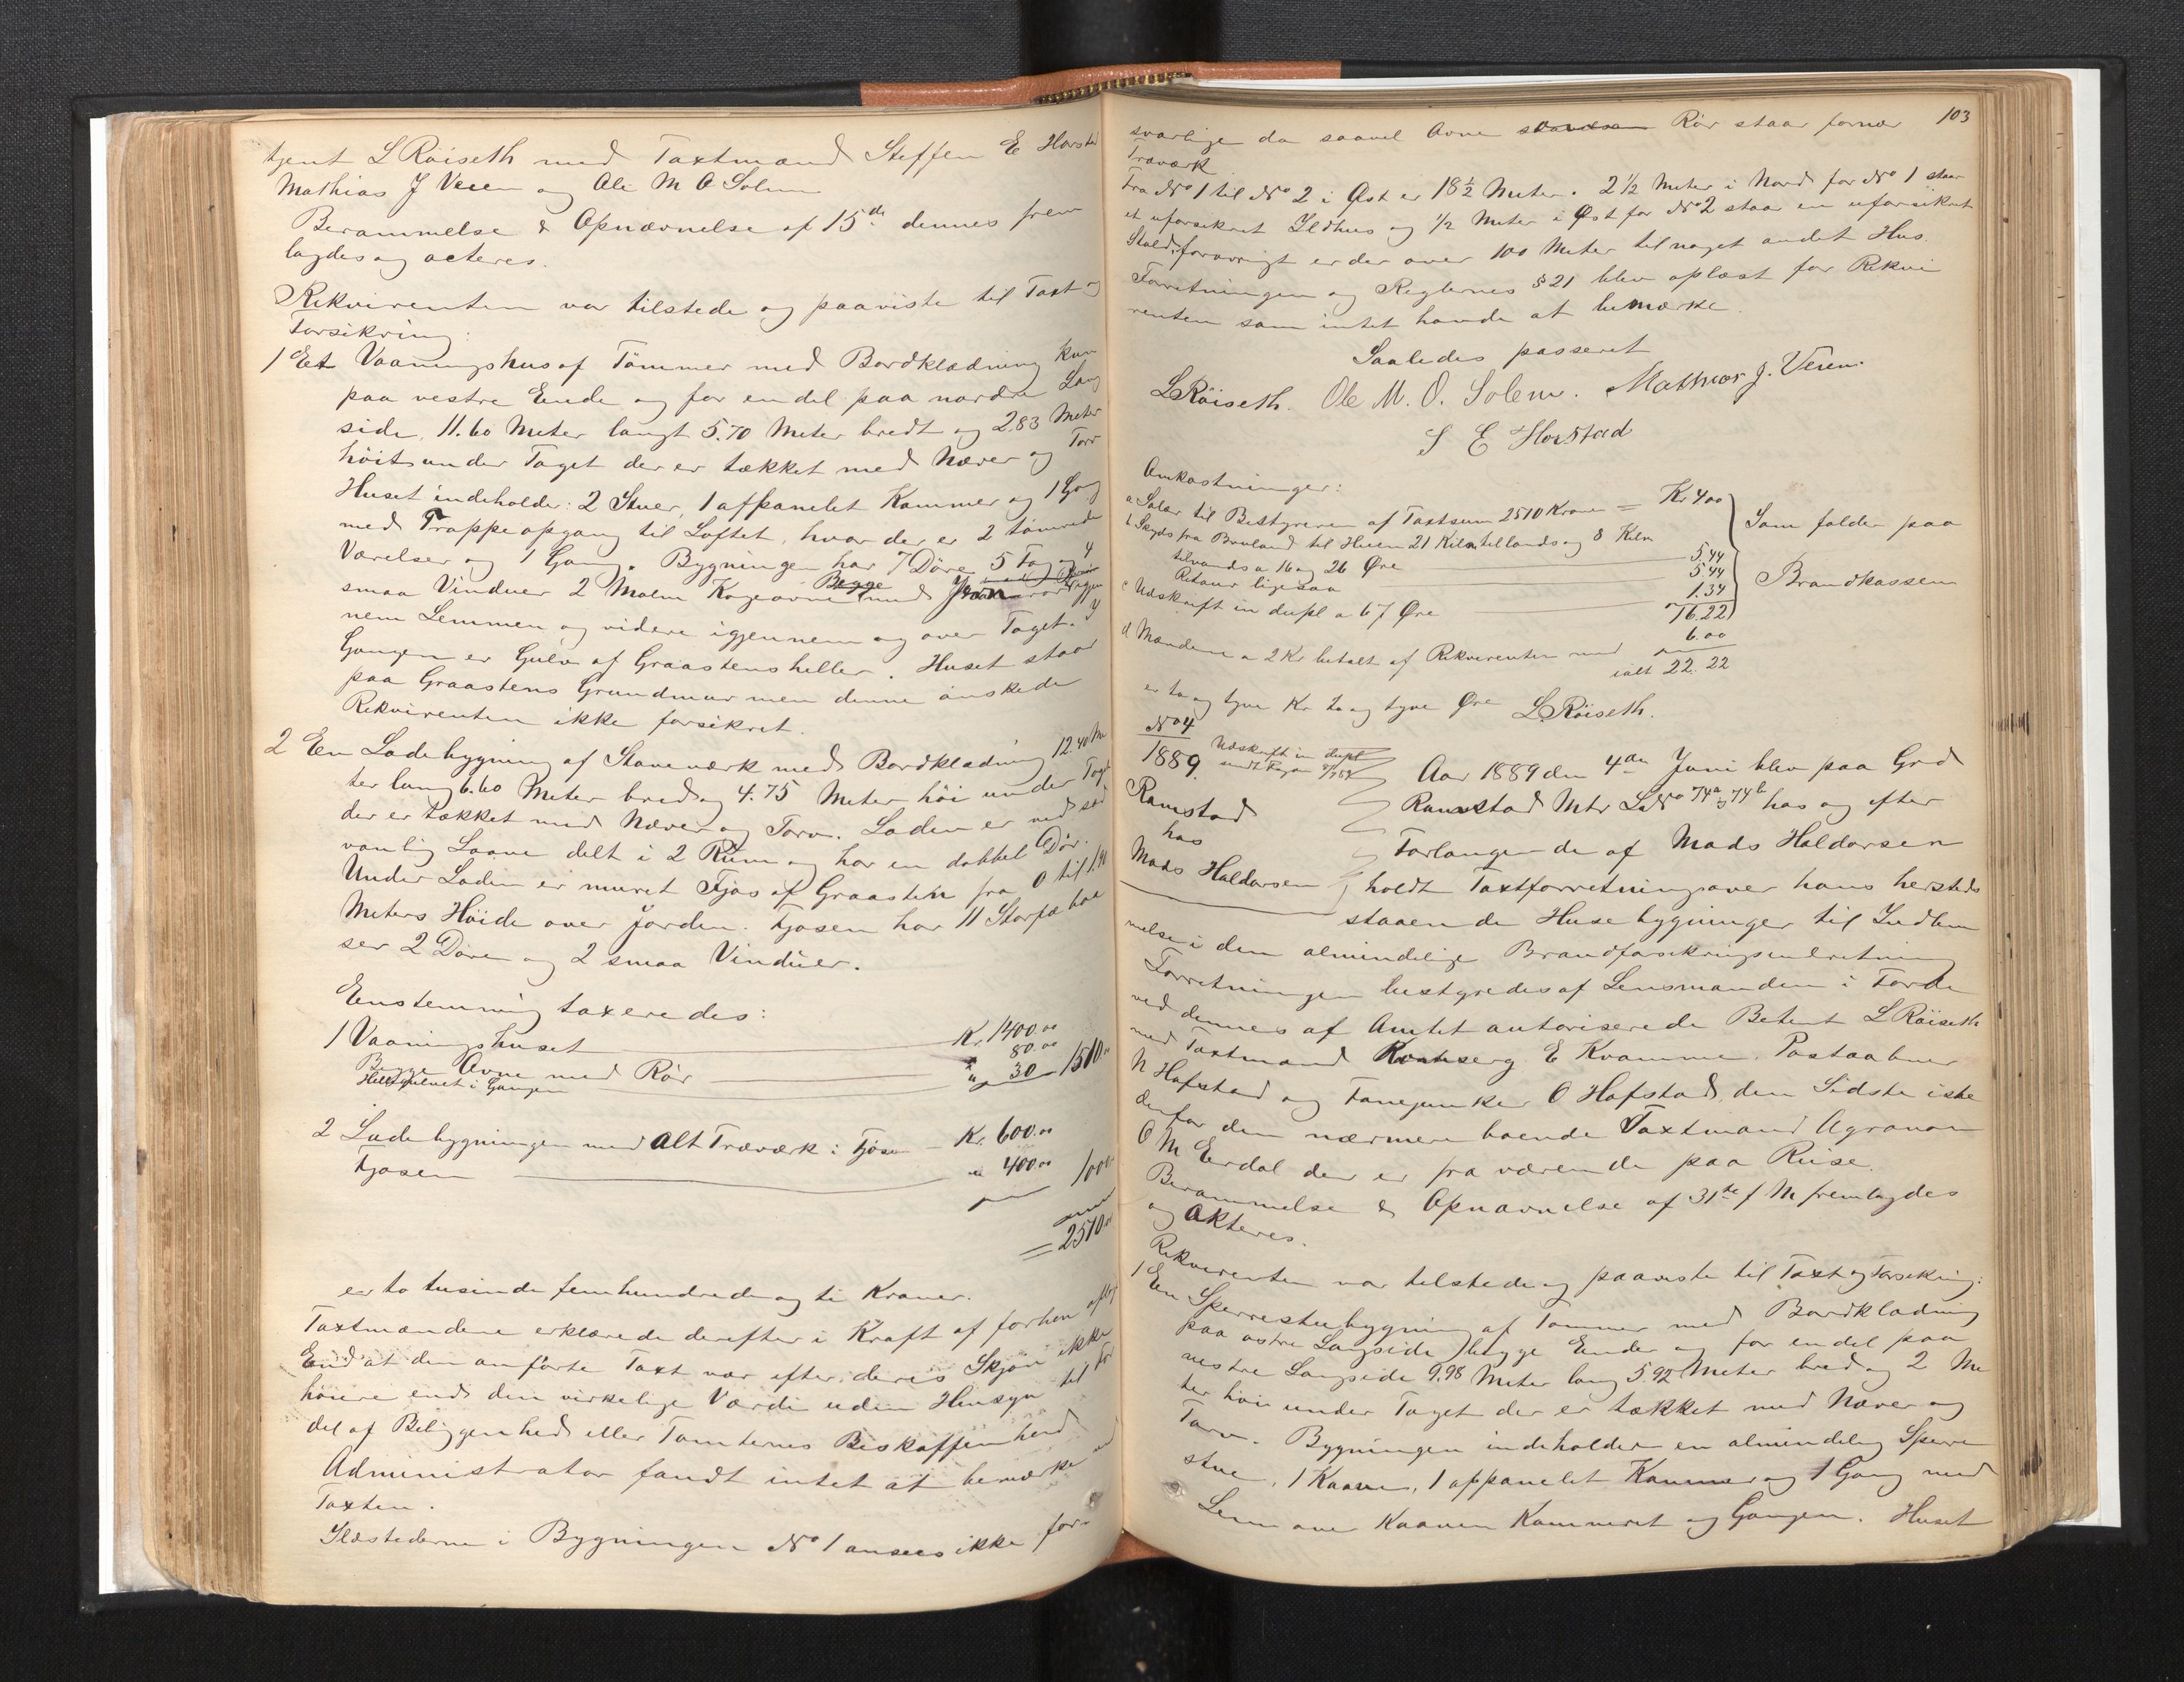 tjent L Röiseth med Taxtmænd Steffen E Horstad
Mathias J Veien og Ole M O Solem
Berammelse & Opnævnelse af 15de dennes frem
lagdes og acteres.
Rekvirenten var tilstede og paaviste til Taxt og
Forsikring:
1 Et Vaaningshus af Tömmer med Bordklædning kun
paa vestre Ende og for en del paa nordre Lang
side, 11.60 Meter langt 5.70 Meter bredt og 2.83 Meter
höit under Taget der er tækket med Næver og Torv
Huset indeholder: 2 Stuer, 1 afpanelet Kammer og 1 Gang
med Trappeopgang til Loftet, hvor der er 2 tömrede
Værelser og 1 Gang. Bygningen har 7 Döre 5 Fag og 4
smaa Vinduer 2 Malm Kogeovne Begge med Jernrör igjen
nem Lemmen og videre igjennem og over Taget. I
Gangen er Gulv af Graastensheller. Huset staar
paa Graastens Grundmur men denne önskede
Rekvirenten ikke forsikret.
2 En Ladebygning af Staveværk med Bordklædning 12.40 Me
ter lang 6.60 Meter bred og 4.75 Meter höi under Taget
der er tækket med Næver og Torv. Laden er ved sæd
vanlig Laave delt i 2 Rum og har en dobbel Dör.
Under Laden er muret Fjös af Graasten fra 0 til 1.90
Meters Höide over Jorden. Fjösen har 11 Storfæbaa
ser 2 Döre og 2 smaa Vinduer.
Enstemmig taxeredes:
1 Vaaningshuset Kr. 1400.00
Begge Ovne med Rör " 80.00
Hellegulvet i Gangen " 30 1510.00
2 Ladebygningen med alt Træværk i Fjösen Kr. 600.00
Fjösen " 400.00 1000
= 2510.00
er to tusinde femhundrede og ti Kroner.
Taxtmændene erklærede derefter i Kraft af forhen aflagt
Eed at den anförte Taxt var efter deres Skjön ikke
höiere end den virkelige Værdi uden Hensyn til For
del af Beliggenhed eller Tomternes Beskaffenhed
Administrator fandt intet at bemærke ved
Taxten.
Ildstederne i Bygningen No 1 ansees ikke for-
103
svarlige da saavel Ovne som Rör staar for nær
Træværk
Fra No 1 til No 2 i Öst er 18 1/2 Meter. 2 1/2 Meter i Nord for No 1 staar
et uforsikret Ildhus og 1/2 Meter i Öst for No 2 staar en uforsikret
Stald, forövrigt er der over 100 Meter til noget andet Hus.
Forretningen og Reglernes § 21 blev oplæst for Rekvi
renten som intet havde at bemærke.
Saaledes passeret
L Röiseth. Ole M. O. Solem. Mathias J. Veien.
S E Horstad
Omkostninger:
a Salær til Bestyreren af Taxtsum 2510 Kroner = Kr 4.00
b Skyds fra Bruland til Hisen 21 Kilm tillands og 8 Kilm
tilvands a 16 og 26 Öre 5.44
Retour ligesaa 5.44
c Udskrift in dupl a 67 Öre 1.34
16.22
Som falder paa
Brandkassen
d Mændene a 2 Kr betalt af Rekvirenten med 6.00
ialt 22.22
er to og tyve Kr to og tyve Öre L Röiseth.
No 4
1889. Udskrift in dupl
Ramstad
hos
Mads Haldorsen
Aar 1889 den 4de Juni blev paa Grd
Ramstad Mtr LNo 74a & 74b hos og efter
Forlangende af Mads Haldorsen
holdt Taxtforretning over hans hersteds
staaende Husebygninger til Indlem
melse i den almindelige Brandforsikringsindretning
Forretningen bestyredes af Lensmanden i Förde
ved dennes af Amtet autoriserede Betjent L Röiseth
med Taxtmænd E Kvamme, Postaabner
N Hafstad og Fanejunker O Hafstad, den Sidste iste
denfor den nærmere boende Taxtmand Agronom
O M Erdal der er fraværende paa Reise.
Berammelse & Opnævnelse af 31te f M fremlagdes
og Akteres.
Rekvirenten var tilstede og paaviste til Taxt og Forsikring:
1 En Sperrestuebygning af Tömmer med Bordklædning
paa östre Langside, begge Ender og for en del paa
vestre Langside 9.98 Meter lang 5.92 Meter bred og 2 Me
ter höi under Taget der er tækket med Næver og
Torv. Bygningen indeholder en almindelig Sperre
stue, 1 Kaave, 1 afpanelet Kammer og 1 Gang med
Lem over Kaaven Kammeret og Gangen. Huset